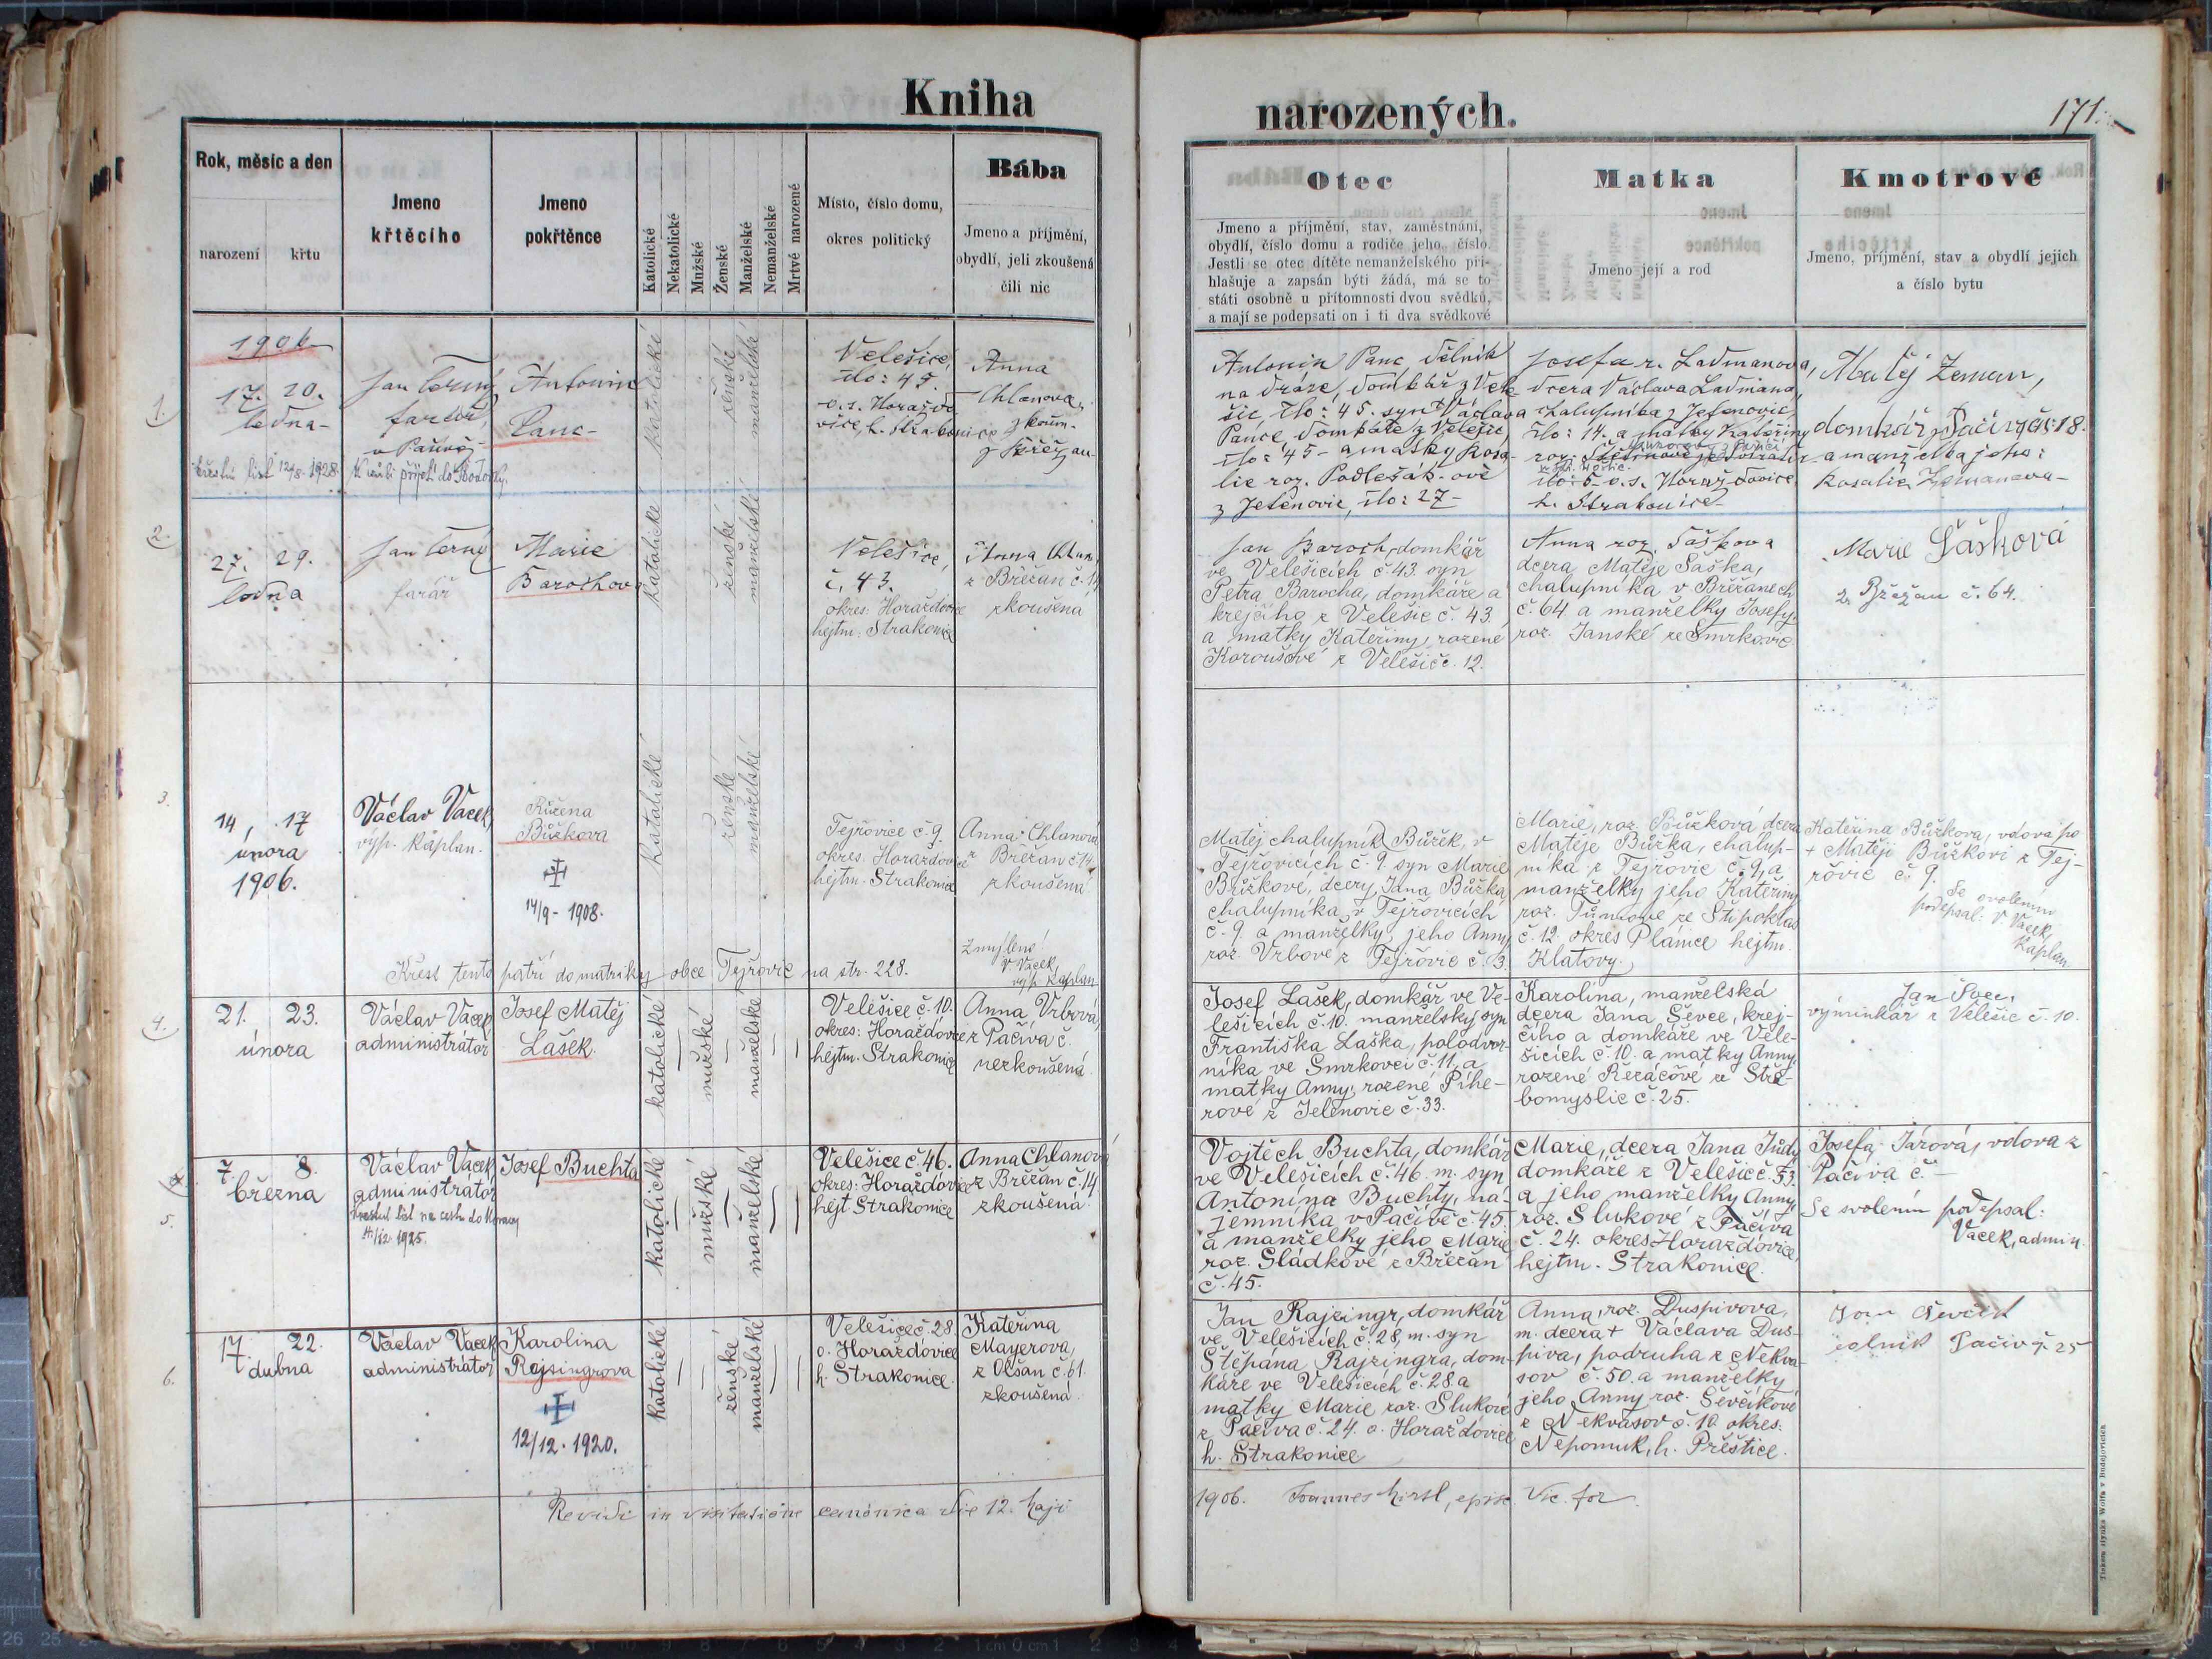 Kniha
narozených.
171.
Rok, měsíc a den
narození
křtu
Jmeno
křtěcího
Jmeno
pokřtěnce
Katolické
Nekatolické
Mužské
Ženské
Manželské
Nemanželské
Mrtvé narozené
Místo, číslo domu,
okres politický
Bába
Jmeno a příjmění,
obydlí, jeli zkoušená
čili nic
Otec
Jmeno a příjmění, stav, zaměstnání,
obydlí, číslo domu a rodiče jeho, číslo.
Jestli se otec dítěte nemanželského při-
hlašuje a zapsán býti žádá, má se to
státi osobně u přítomnosti dvou svědků,
a mají se podepsati on i ti dva svědkové
Matka
Jmeno její a rod
Kmotrové
Jmeno, příjmění, stav a obydlí jejich
a číslo bytu
1906
1.
17. 20.
ledna
křestní list 12/8. 1928.
Jan Černý
farář
v Pačivě
Antonin
Panc
katolické
ženské
manželské
Velešice,
člo: 45.
o. s. Horažďo-
vice, h. Strakonice
Anna
Chlanova,
z Břežan
Antonin Panc dělník
na dráze, domkář z Vele-
šic, člo: 45. syn Václava
Pance, domkáře z Velešic,
člo: 45 a matky Rosa-
lie roz. Podlešák-ové
z Jelenovic, člo: 27
Josefa r. Ladmanova,
dcera Václava Ladmana,
chalupníka z Jelenovic,
člo: 14. a matky Kateřiny
roz.
člo: 5 o. s. Horažďovice
h. Strakonice
Matěj Zeman,
domkář z Pačiva čís 18.
a manželka jeho:
Rosalie Zemanova
2.
27. 29.
ledna
Jan Černý
farář
Marie
Barochova
katolické
ženské
manželské
Velešice,
č. 43.
okres: Horažďovice
hejtm. Strakonice
Anna Chlan.
z Břežan č. 14
zkoušená
Jan Baroch, domkář
ve Velešicích č. 43. syn
Petra Barocha, domkáře a
krejčího z Velešic č. 43.
a matky Kateřiny, rozené
Koroušové z Velešic č. 12.
Anna roz. Šaškova
dcera Matěje Šaška,
chalupníka v Břežanech
č. 64 a manželky Josefy
roz. Janské ze Smrkovic
Marie Šášková
z Břežan č. 64.
3.
14, 17
února
1906.
Václav Vacek
výp. kaplan.
Růžena
Bůžkova
14/9 - 1908.
katolické
ženské
manželské
Tejřovice č. 9.
okres. Horažďovice
hejtm. Strakonice
Anna Chlanová
z Břežan č. 14.
zkoušená
Matěj chalupník Bůžek, v
Tejřovicích č. 9. syn Marie
Bůžkové, dcery Jana Bůžka
chalupníka v Tejřovicích
č. 9 a manželky jeho Anny
roz. Vrbové z Tejřovic č. 3.
Marie, roz. Bůžková dcera
Matěje Bůžka, chalup-
níka z Tejřovic č. 9, a
manželky jeho Kateřiny
roz. Tůmové ze Štipoklas
č. 12. okres Plánice hejtm.
Klatovy.
Kateřina Bůžkova, vdova po
+ Matěji Bůžkovi z Tej-
řovic č. 9.
Se svolením
podepsal: V. Vacek,
kaplan.
Křest tento patří do matriky obce Tejřovic na str. 228.
Zmýleno!
V. Vacek,
výp. kaplan
4.
21. 23.
února
Václav Vacek
administrátor
Josef Matěj
Lašek.
katolické
mužské
manželské
Velešice č. 10.
okres: Horažďovice
hejtm. Strakonice
Anna Vrbová,
z Pačiva č.
nezkoušená
Josef Lašek, domkář ve Ve-
lešicích č. 10. manželský syn
Františka Laška, polodvor-
níka ve Smrkovci č. 11, a
matky Anny, rozené Pihe-
rové z Jelenovic č. 33.
Karolina, manželská
dcera Jana Ševce, krej-
čího a domkáře ve Vele-
šicích č. 10. a matky Anny
rozené Řezáčové ze Stře-
bomyslic č. 25.
Jan Švec,
výminkář z Velešic č. 10.
5.
7. 8.
března
Václav Vacek
administrátor
11/12 1925.
Josef Buchta
katolické
mužské
manželské
Velešice č. 46.
okres: Horažďovice
hejt Strakonice
Anna Chlanová
z Břežan č. 14
zkoušená
Vojtěch Buchta, domkář
ve Velešicích č. 46. m. syn
Antonína Buchty, ná-
jemníka v Pačivě č. 45.
a manželky jeho Marie
roz. Sládkové z Břežan
č. 45.
Marie, dcera Jana Jůdy
domkáře z Velešic č. 53.
a jeho manželky Anny
roz. Slukové z Pačiva
č. 24. okres Horažďovice,
hejtm. Strakonice.
Josefa Járová, vdova z
Pačiva č. —
Se svolením podepsal:
Vacek, admin.
6.
17. 22.
dubna
Václav Vacek
administrátor
Karolina
Rajsingrova
12/12. 1920.
katolické
ženské
manželské
Velešice č. 28.
o. Horažďovice
h. Strakonice.
Kateřina
Mayerova,
z Olšan č. 61.
zkoušená.
Jan Rajzingr, domkář
ve Velešicích č. 28, m. syn
Štěpána Rajzingra, dom-
káře ve Velešicích č. 28. a
matky Marie roz. Slukové
z Pačiva č. 24. o. Horažďovice
h. Strakonice
Anna, roz. Duspivova,
m. dcera + Václava Dus-
piva, podruha z Nekva-
sov č. 50. a manželky
jeho Anny roz. Ševčíkové
z Nekvasov č. 10. okres.
Nepomuk, h. Přeštice.
rolnik Pačiv č. 25
Revidi in visitatione canonica die 12. Maji
1906. Joannes Hirsl, episc. Vic. for.
Tiskem Zdyňka Wolfa v Budějovicích